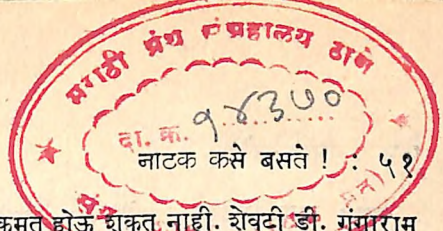 मराठी ग्रंथ संग्रहालय ठाणे
दा. क्र. १४३७०
नाटक कसे बसते ! : ५१
कमत होऊ शकत नाही. शेवटी डी. गंगाराम